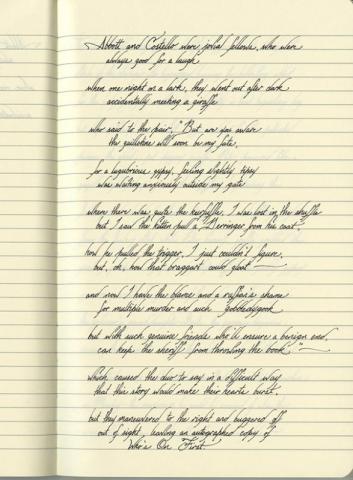 Abbott and Costello were jovial fellows, who were
always good for a laugh
when one night on a lark, they went out after dark
accidentally meeting a giraffe
who said to the pair, "But are you aware
the guillotine will soon be my fate,
for a lugubrious gypsy, feeling slightly tipsy
was waiting anxiously outside my gate
where there was quite the kerfuffle, I was lost in the shuffle
but I saw the kitten pull a Derringer from his coat
how he pulled the trigger, I just couldn't figure,
but, oh, how that braggart could gloat
and now I have the blame and a ruffian's shame
for multiple murder and such gobbledygook
but with such genuine friends who'll ensure a benign end,
can keep the sheriff from throwing the book"
which caused the duo to say in a difficult way
that this story would make their hearts burst,
but they maneuvered to the right and buggered off
out of sight, leaving an autographed copy of
Who's On First.